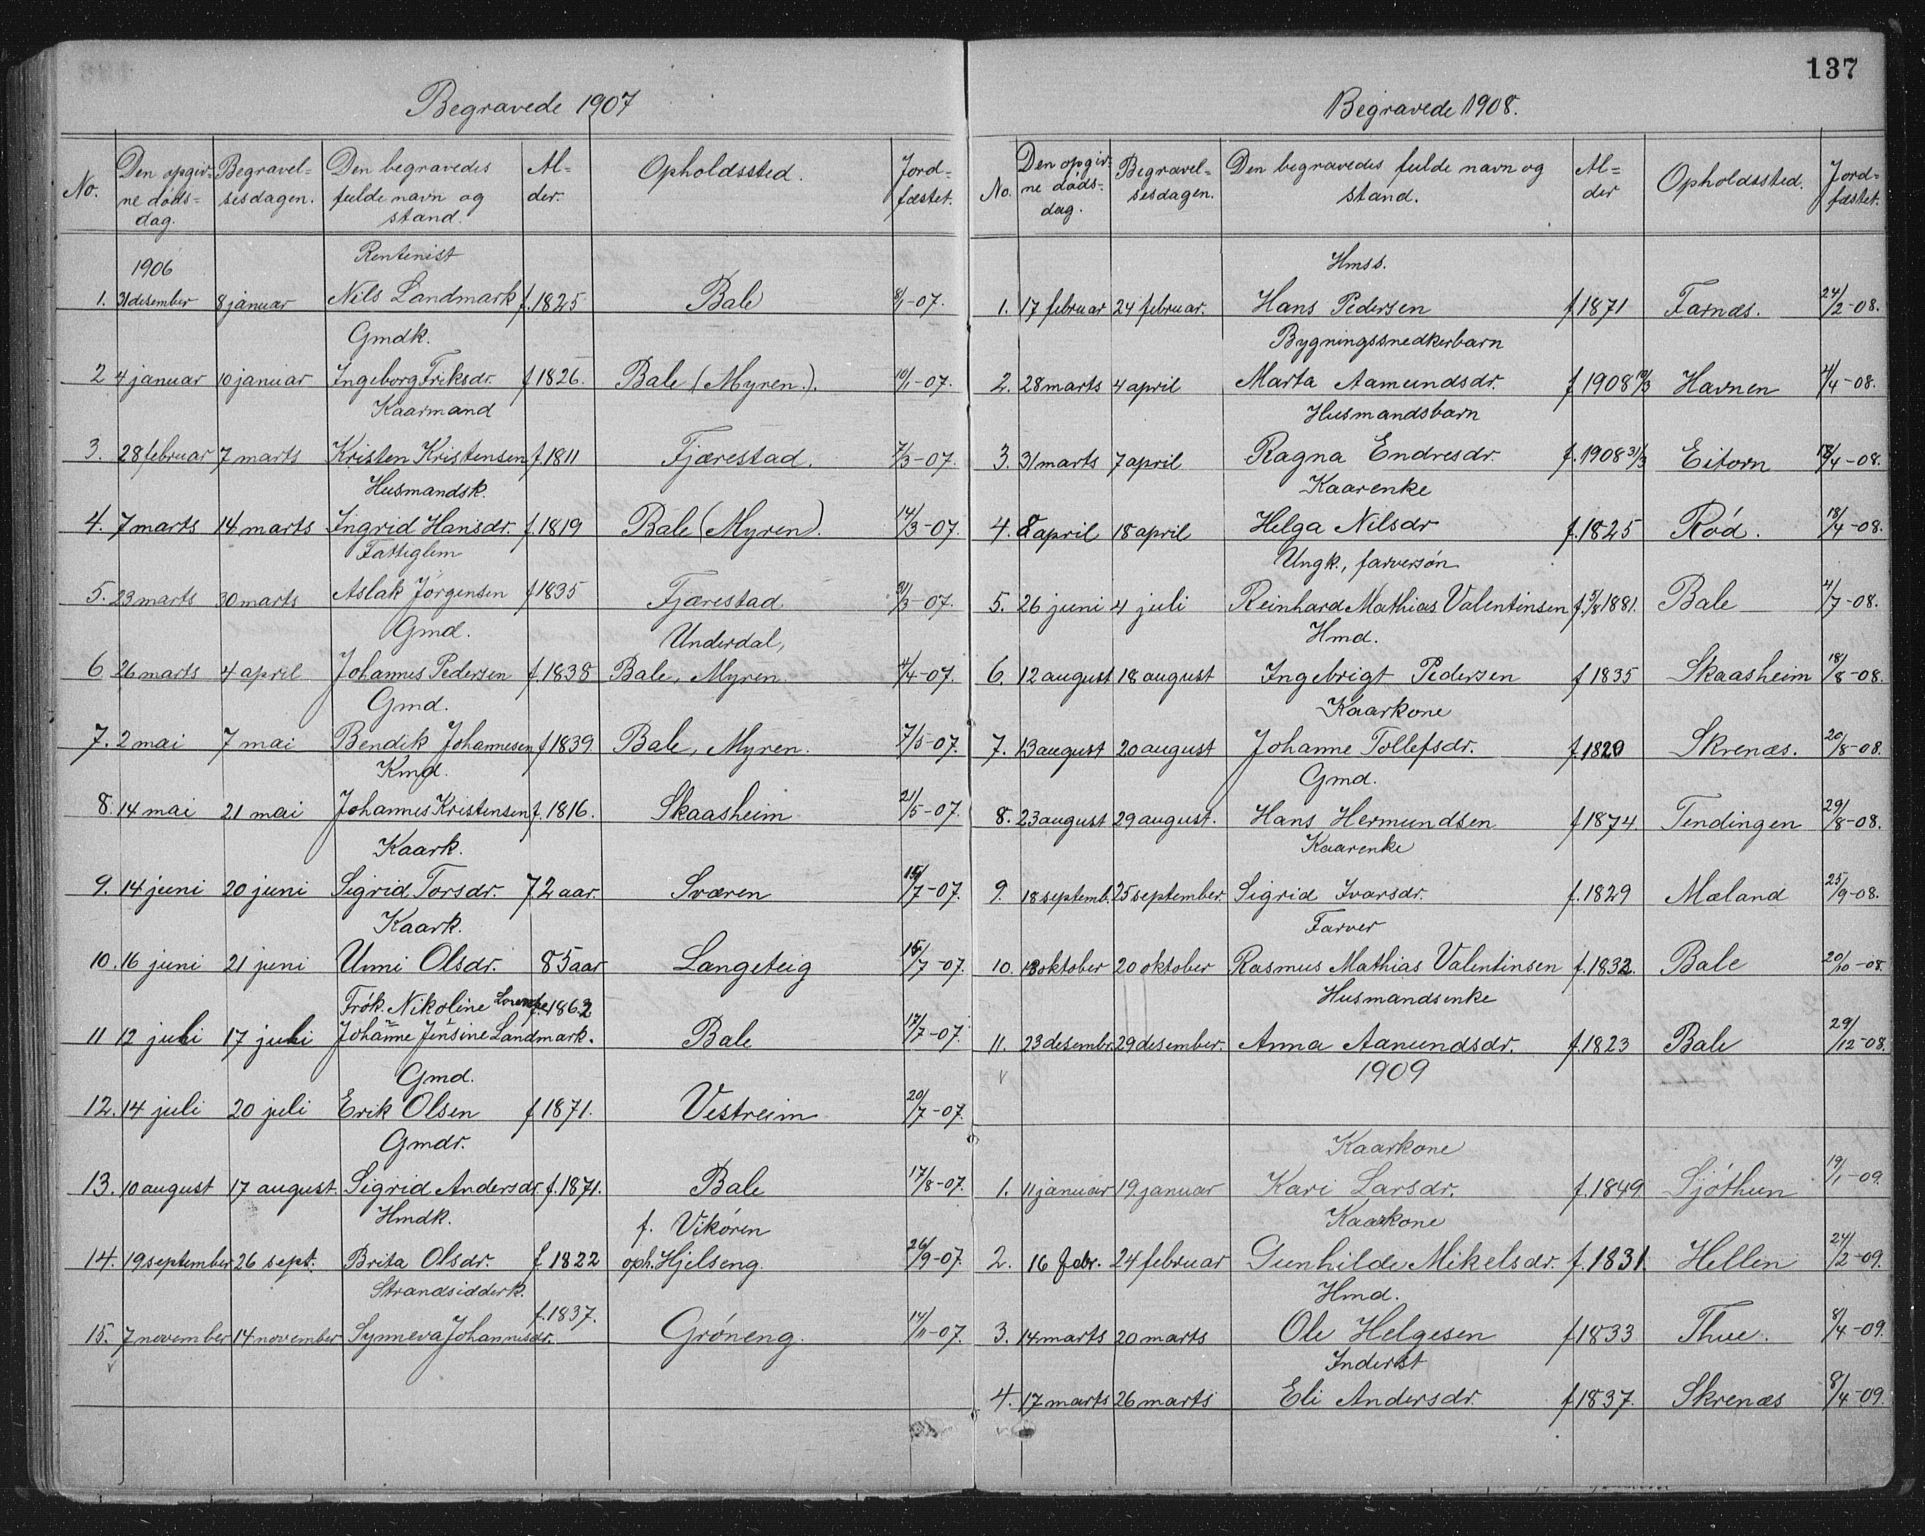 137
Begravede 1907
No. Den opgivne dødsdag. Begravelsesdagen. Den begravedes fulde navn og stand. Alder. Opholdssted. Jordfæstet.
1906 Rentenist
1. 31 desember 8 januar Nils Landmark f. 1825 Bale 8/1-07.
Gmdk.
2 4 januar 10 januar Ingeborg Eriksdr. f. 1826. Bale (Myren.). 10/1-07.
Kaarmand
3. 28 februar 7 marts Kristen Kristensen f. 1811 Fjærestad. 7/3-07.
Husmandsk.
4. 7 marts 14 marts Ingrid Hansdr. f. 1819 Bale (Myren). 14/3-07.
Fattiglem
5. 23 marts 30 marts Aslak Jørgensen f 1835 Fjærestad 30/3-07.
Gmd. Underdal,
6 26 marts 4 april Johannes Pedersen f. 1838 Bale, Myren. 4/4-07.
Gmd.
7. 2 mai 7 mai Bendik Johannesen f 1839. Bale, Myren. 7/5-07.
Kmd.
8. 14 mai 21 mai Johannes Kristensen f. 1816. Skaasheim 21/5-07.
Kaark.
9. 14 juni 20 juni Sigrid Torsdr. 72 aar. Sværen /7-07.
Kaark.
10. 16 juni 21 juni Unni Olsdr. 85 aar Langeteig /7-07.
Frøk. Nikoline Lorentze f. 1862
11 12 juli 17 juli Johanne Jensine Landmark. Bale 17/7-07.
Gmd.
12. 14 juli 20 juli Erik Olsen f. 1871. Vestreim 20/7-07.
Gmdr.
13. 10 august 17 august. Sigrid Andersdr. f. 1871. Bale 17/8-07.
Hmdk. f. Vikøren
14. 19 september 26 sept. Brita Olsdr. f. 1822 oph. Hjelseng. 26/9-07.
Strandsidderk. f. 1837.
15. 7 november 14 november Synneva Johannesdr. Grøneng. 14/11-07.
Begravede 1908.
No. Den opgivne dødsdag. Begravelsesdagen. Den begravedes fulde navn og stand. Alder Opholdssted. Jordfæstet.
Hmss.
1. 17 februar 24 februar. Hans Pedersen f 1871 Farnæs. 24/2-08.
Bygningssnedkerbarn
2. 28 marts 4 april Marta Aamundsdr. f. 1908 19/3 Havnen 4/4-08.
Husmandsbarn
3. 31 marts 7 april Ragna Endresdr. f. 1908 31/3 Eitorn /4-08.
Kaarenke
4. 8 april 18 april Helga Nilsdr f. 1825 Rød. 18/4-08.
Ungk., farversøn
5. 26 juni 4 juli Reinhard Mathias Valentinsen f. 5/8 1881. Bale 4/7-08.
Hmd.
6. 12 august 18 august Ingebrigt Pedersen f 1835 Skaasheim 18/8-08.
Kaarkone
7. 13 august 20 august Johanne Tollefsdr. f. 1820 Skrenæs. 20/8-08.
Gmd.
8. 23 august 29 august. Hans Hermundsen f 1874 Tendingen 29/8-08.
Kaarenke
9. 18 septemb. 25 september. Sigrid Ivarsdr. f. 1829 Mæland 25/9-08.
Farver
10. 13 oktober 20 oktober Rasmus Mathias Valentinsen f. 1832. Bale 20/10-08.
Husmandsenke
11. 23 desembr. 29 desember. Anna Aamundsdr. f. 1823 Bale 29/12-08.
1909
Kaarkone
1. 11 januar 19. januar Kari Larsdr. f. 1849 Sjøthun 19/1-09.
Kaarkone
2. 16 febr. 24 februar Gunhilde Mikelsdr. f. 1831. Hellen 24/2-09.
Hmd.
3. 14 marts 20 marts Ole Helgesen f 1833 Thue. 8/4-09.
Inderst
4. 17 marts 26 marts Eli Andersdr. f 1837. Skrenæs 8/4-09.